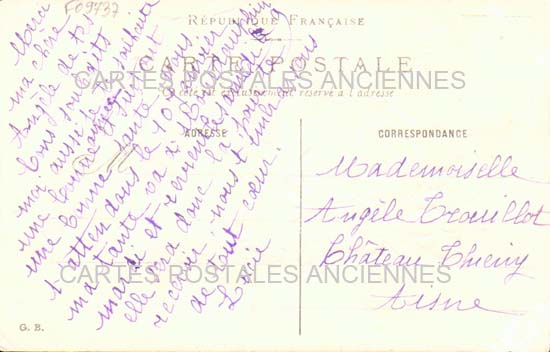 F09737
RÉPUBLIQUE FRANÇAISE
CARTE POSTALE
Ce côté est exclusivement réservé à l'adresse
ADRESSE
CORRESPONDANCE
CARTES POSTALES ANCIENNES
CARTES POSTALES ANCIENNES
Merci
ma chère
Angèle de tes
bons souhaits
moi aussi je te souhaite
une bonne année
une bonne santé
t'attend dans le 10 janvier
ma tante va à
mardi et revient samedi
elle sera donc là pour
recevoir nous t'
de tout cœur.
Lucie
Mademoiselle
Angèle Trouillot
Château Thierry
Aisne
G. B.